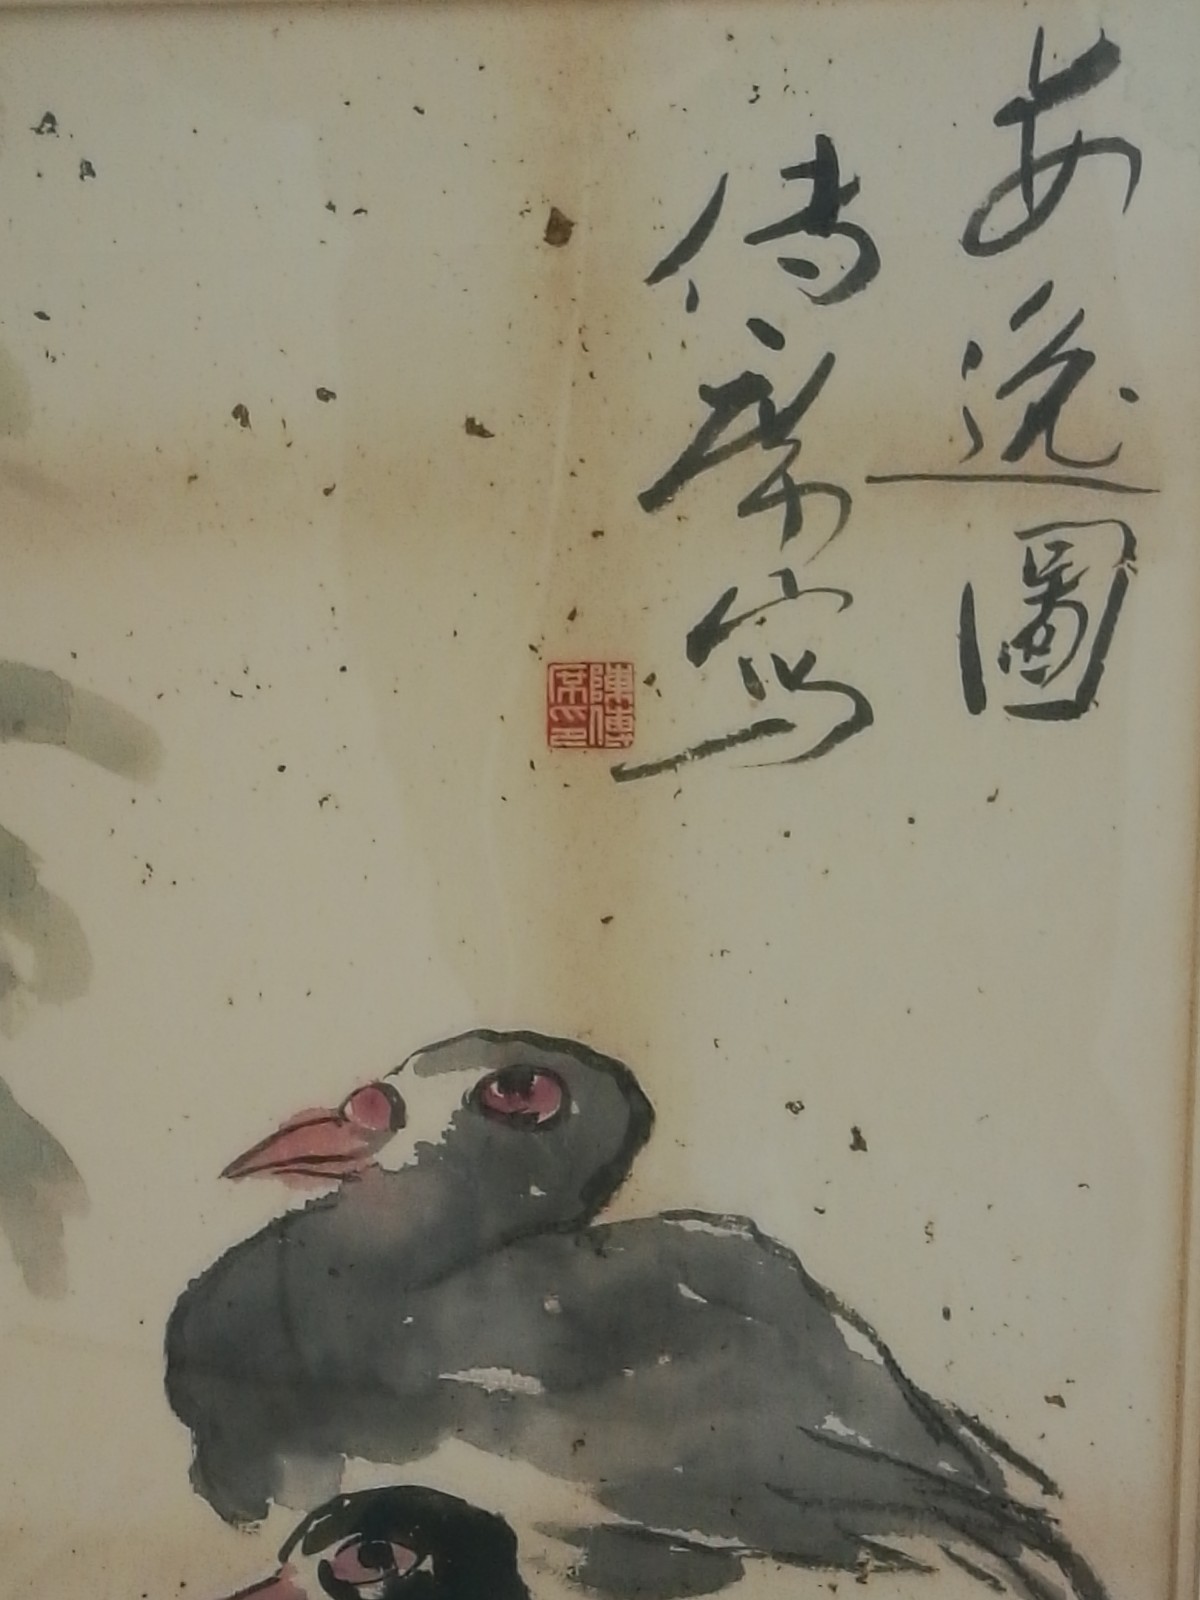 安逸圖
傳席寫
陳傳席印